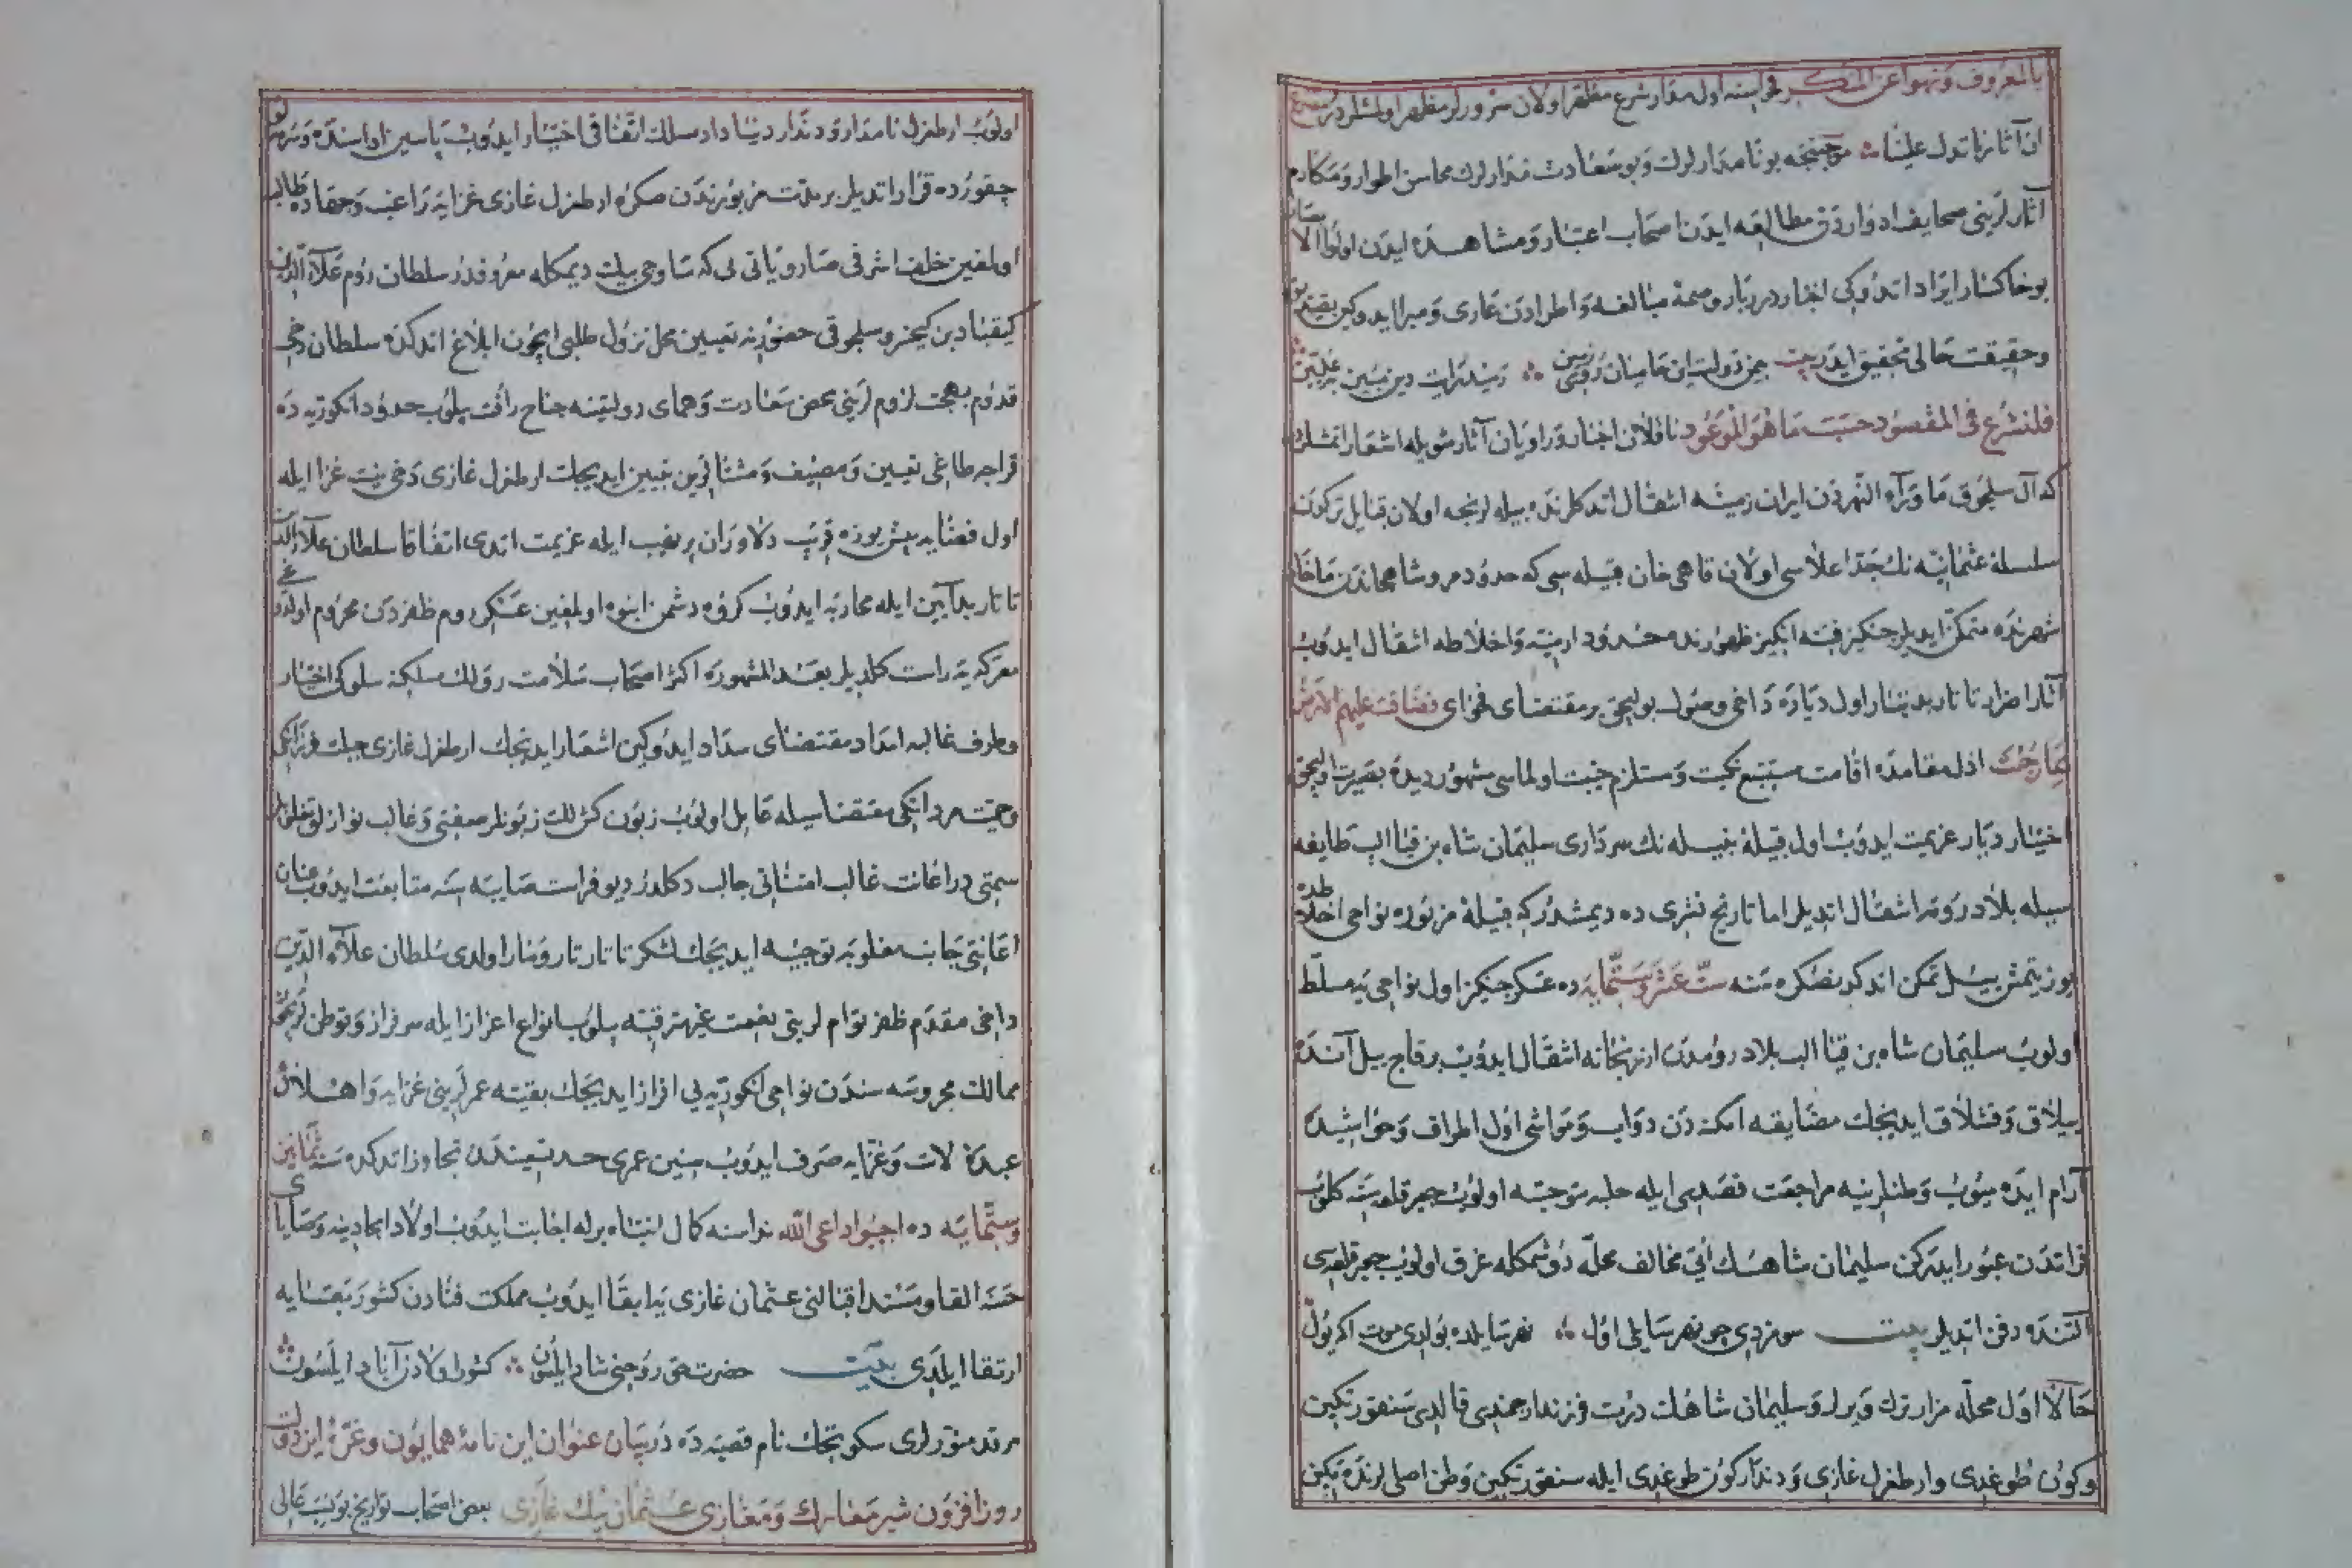 بالمعروف ونهوا عن المنكر فحواسنه اول مقدار شرع مظفر اولان سرورلر مظهر اولمشلردر مصرع
ان آثارنا تدل علينا موجبنجه بو نامدارلرك وبو سعادت مدارلرك محاسن اطوار ومكارم
آثارلرينى صحايف ادواردن مطالعه ايدن اصحاب اعتبار ومشاهده ايدن اولوا الابصار
بو خاكسار ايراد اتدوكى اخبار درربار وصمۀ مبالغه واطرادن عارى ومبرا ايدوكين
وحقيقت حالى تحقيق ايدر بيت دين مبين
فلنشرع فى المقصود حسب ما هو الموعود ناقلان اخبار وراويان آثار شويله اشعار اتمشلردر
كه آل سلجوق ما وراء النهردن ايران زمينه انتقال اتدكلرنده بيله لرنجه اولان قبايل تركدن
سلسلۀ عثمانيه نك جد اعلاسى اولان قايى خان قبيله سى كه حدود مرو شاهجاندن ماخان
شهرنده متمكن ايديلر جنكيز فتنه انكيز ظهورنده حدود ارمنيه واخلاطه انتقال ايدوب
آثار اضرار تاتار بدتبار اول ديارده داخى وصول بوليجق بر مقتضاى فحواى فضاقت عليهم الارض
بما رحبت اول مقامده اقامت مستتبع نكبت ومستلزم خيبت اولماسى مشهور ديدۀ بصيرت اوليجق
اختيار ديار عزيمت ايدوب اول قبيلۀ نبيله نك سردارى سليمان شاه بن قيا الب طايفه
سيله بلاد رومه انتقال اتديلر اما تاريخ نشرى ده ديمشدر كه قبيلۀ مزبوره نواحى اخلاطده
يوز يتمش ييل تمكن اتدكدنصكره سنه ستّ عشر وستمايه ده عسكر جنكيز اول نواحى يه مسلّط
اولوب سليمان شاه بن قيا الب بلاد رومدن ارزنجانه انتقال ايدوب بر قاج ييل آنده
ييلاق وقشلاق ايديجك مضايقه امكنه دن دواب ومواشى اول اطراف وحواشيده
آرام ايده ميوب وطنلرينه مراجعت قصدى ايله حلبه متوجه اولوب جعبر قلعه سنه كلوب
فراتدن عبور ايدركن سليمان شاهك اتى مخالف محله دوشمكله غرق اولوب جعبر قلعه سى
التنده دفن اتديلر بيت سوزدى جو نهر سايلى اول نهر سايلده بولدى موت اكه يول
حالا اول محله مزار ترك ديرلر و سليمان شاهك درت فرزند ارجمندى قالدى سنقور تكين
و كون طوغدى و ارطغرل غازى و دندار كون طوغدى ايله سنقور تكين وطن اصليلرنده تمكين
اولوب ارطغرل نامدار و دندار دينادار مسلك اتفاقى اختيار ايدوب پاسين اواسنده وسرملو
چقورده قرار اتديلر بر مدت مزبورندن صكره ارطغرل غازى غزايه راغب وجهاده طالب
اولمغين خلف اشرفى صارو ياتى لى كه ساوجى بيك ديمكله معروفدر سلطان روم علاء الدين
كيقباد بن كيخسرو سلجوقى حضورنه تعيين محل نزول طلبى ايچون ابلاغ اتدكده سلطان دخى
قدوم بهجت لزوملرينى محض سعادت وهماى دولتينه جناح رأفت بيلوب حدود انكوريه ده
قراجه طاغى تعيين ومصيف ومشتالرين تبيين ايديجك ارطغرل غازى دخى نيت غزا ايله
اول فضايه بش يوزه قريب دلاوران پر نهيب ايله عزيمت اتدى اتفاقا سلطان علاء الدين
تاتار بدآيين ايله محاربه ايدوب كروه دشمن انبوه اولمغين عسكر روم ظفردن محروم اولدوغى
معركه يه راست كلديلر بعد المشهوره اكثر اصحاب سلامت رولك مسلكنه سلوكى اختيار
وطرف غالبه امداد مقتضاى سداد ايدوكين اشعار ايديجك ارطغرل غازى جبلت فرزانكى
وحميت مردانكى مقتضاسيله قايل اولوب زبون كشلك زبونلر صفتى وغالب نوازلق
سمتى در اغاثت غالب امتنانى جالب دكلدر ديو فراست صايبه سنه متابعت ايدوب عنان
اعانتى جانب مغلوبه توجيه ايديجك لشكر تاتار تارومار اولدى سلطان علاء الدين
داخى مقدم ظفر توأملرينى نعمت غير مترقبه بيلوب انواع اعزاز ايله سرفراز وتوطنلريچون
ممالك محروسه سندن نواحى انكوريه يى افراز ايديجك بقيۀ عمرلرينى غزايه واهلاك
عبدۀ لات وعزايه صرف ايدوب سنين عمرى حد تسعيندن تجاوز اتدكده سنه ثمانين
وستمايه ده اجيبوا داعى الله نداسنه كمال انتباه برله اجابت ايدوب اولاد امجادينه وصاياى
حسنه القا و مسند اقبالنى عثمان غازى يه ابقا ايدوب مملكت فنادن كشور بقايه
ارتقا ايلدى بيت حضرت حق روحنى شاد ايلسون كشور اولادن آباد ايلسون
مرقد منورلرى سكوتجك نام قصبه ده در بيان عنوان اين نامۀ همايون وغرۀ اين دولت
روز افزون شير معارك ومغازى عثمان بيك غازى بعض اصحاب تواريخ بو نسب عالى